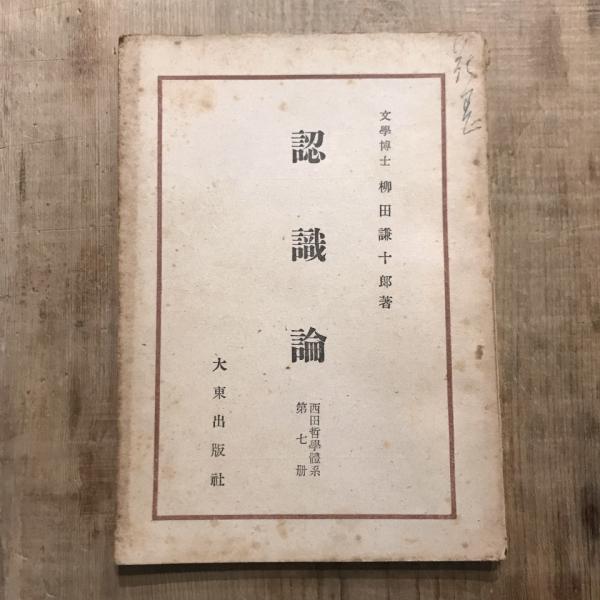 文學博士 柳田謙十郎著
認識論
西田哲學體系
第七册
大東出版社